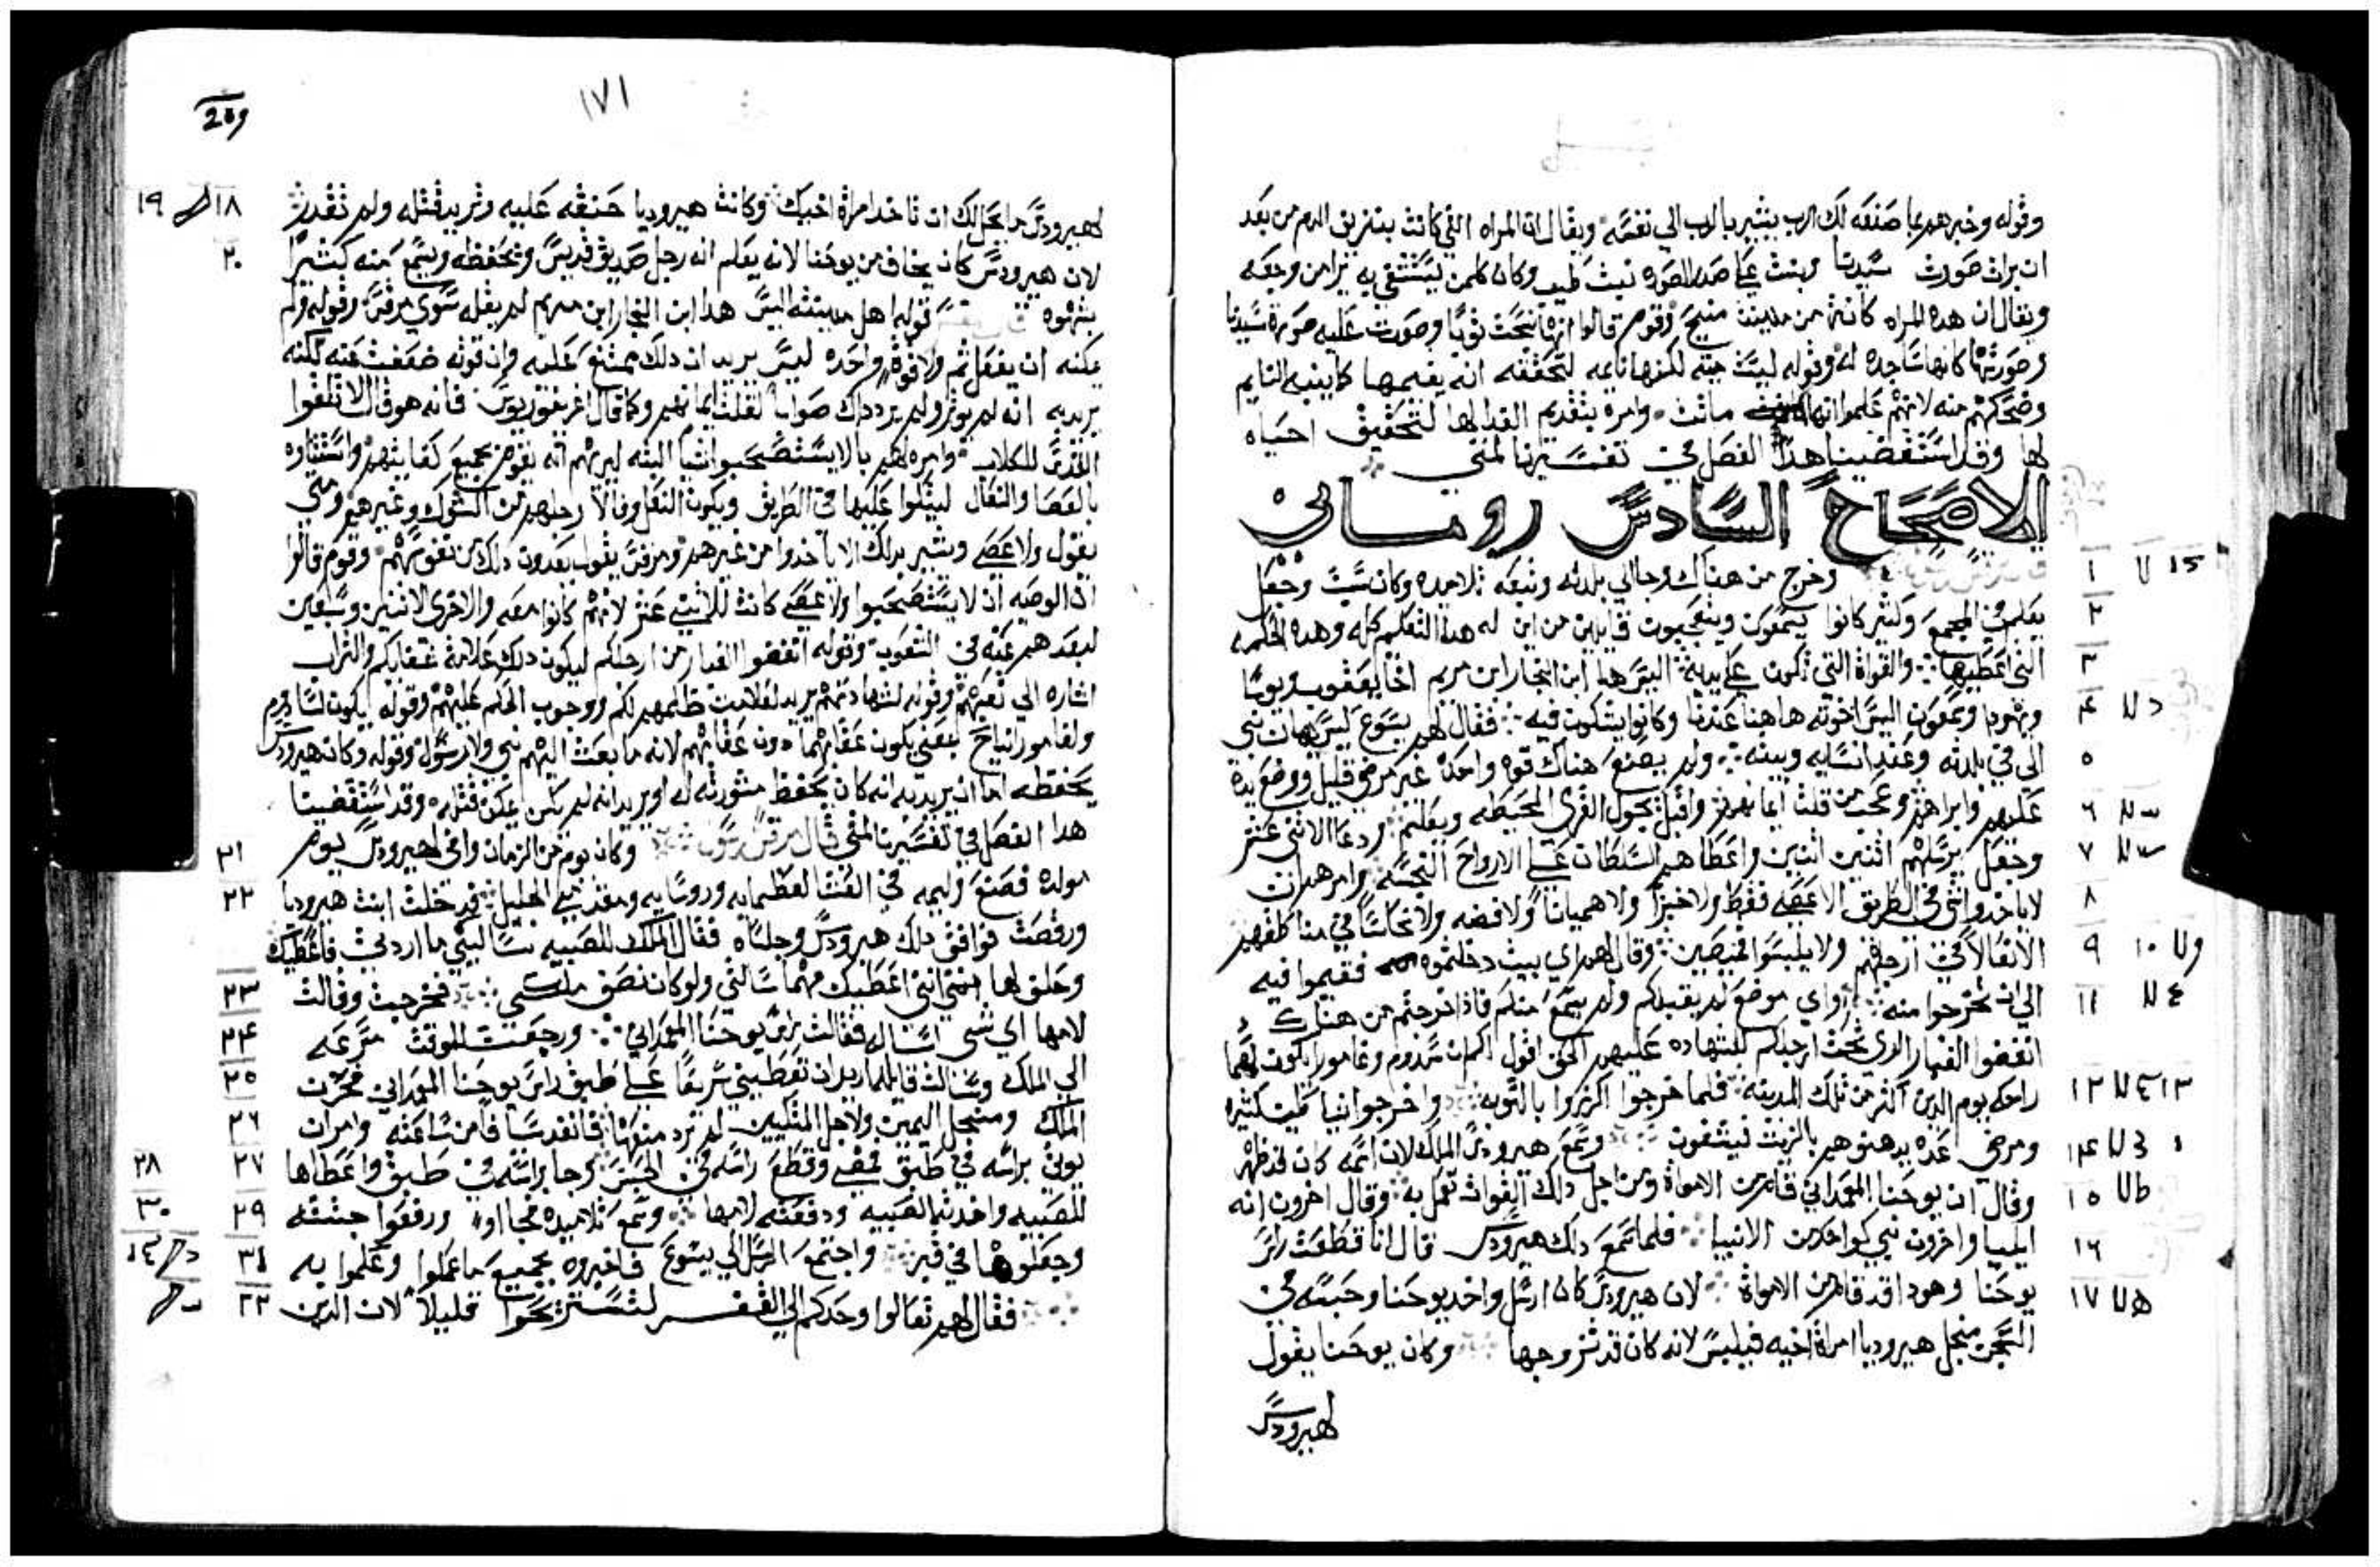 وقوله وخبرهم بما صنعه لك الرب يشير بالرب الي نفسه ويقال ان المراه التي كانت بنزيف الدم من بعد
ان برات صورت سيدنا وبنت على هذه الصوره بيت وكان كلمن يستشفي به يبرا من وجعه
ويقال ان هده المراه كانة من مدينة منبج وقوم قالوا انها نحت ثوبا وصورت عليه صورة سيدنا
وصورتها كانها ساجده له وقوله ليست ميته لكنها نايمه لتحققه انه يقيمها كما ينبه النايم
وضحكهم منه لانهم علموا انها ماتت وامره بتقديم الغدا لها لتحقيق احياه
لها وقد استقضينا هدا الفصل في تفسيرنا لمتى
الاصحاح السادس روماني
١ وخرج من هناك وجا الي بلدته وتبعه تلاميده وكان سبت وجعل
٢ يعلم في المجمع وكثير كانوا يسمعون ويتعجبون قايلين من اين له هدا التعليم كله وهده الحكمه
٣ التي اعطيها والقواة التي تكون على يديه اليس هدا ابن النجار ابن مريم اخا ليعقوب ويوسا
٤ ويهودا وسمعون اليس اخوته هاهنا عندنا وكانوا يشكون فيه فقال لهم يسوع ليس يهان نبي
٥ الا في بلدته وعند انسابه وبيته ولم يصنع هناك قوه واحده غير مرضى قليل ووضع يده
٦ عليهم وابراهم وعجب من قلت ايمانهم واقبل يجول القرى المحيطه ويعلم ودعا الاثني عشر
٧ وجعل يرسلهم اثنين اثنين واعطاهم السلطان على الارواح النجسه وامرهم ان
٨ لا ياخدوا شي في الطريق الا عصى فقط ولا خبزا ولا هميانا ولا فضه ولا نحاسا في مناطقهم
٩ ١٠ الا نعالا في ارجلهم ولا يلبسوا قميصين وقال لهم اي بيت دخلتموه فقيموا فيه
١١ الي ان تخرجوا منه واي موضع لم يقبلكم ولم يسمع منكم فاذا خرجتم من هناك
انفضوا الغبار الدي تحت ارجلكم للشهاده عليهم الحق اقول لكم ان سدوم وغامورا يكون لهما
١٢ ١٣ راحه يوم الدين اكثر من تلك المدينه فلما خرجوا اكرزوا بالتوبه واخرجوا شياطين كثيره
١٤ ومرضى عده يدهنوهم بالزيت فيشفون وسمع هيرودس الملك لان اسمه كان قد ظهر
١٥ وقال ان يوحنا المعمداني قام من الامواة ومن اجل دلك القوات تعمل به وقال اخرون انه
١٦ ايليا واخرون نبي كواحد من الانبيا فلما سمع دلك هيرودس قال انا قطعت راس
١٧ يوحنا وهودا قد قام من الامواة لان هيرودس كان ارسل واخد يوحنا وحبسه في
السجن منجل هيروديا امراة اخيه فيلبس لانه كان قد تزوجها وكان يوحنا يقول
لهيرودس
١٧١
209
١٨ ١٩ لهيرودس ما يحل لك ان تاخد امراة اخيك وكانت هيروديا حنقه عليه وتريد قتله ولم تقدر
٢٠ لان هيرودس كان يخاف من يوحنا لانه يعلم انه رجل صديق قديس ويحفظه ويسمع منه كثيرا
بشهوه قوله اهل مدينته اليس هدا ابن النجار ابن مريم لم يقله سوي مرقس وقوله ولم
يمكنه ان يفعل ثم ولا قوة واحده ليس يريد ان دلك ممتنع عليه وان قوته ضعفت عنه لكنه
يريد به انه لم يوثر ولم يرد داك صوابا لقلت ايمانهم وكما قال اغريغوريوس فانه هو قال لا تلقوا
القدس للكلاب وامره لهم بالا يستصحبوا شيا البته ليريهم انه يقوم بجميع كفايتهم واستثناوه
بالعصا والنعال ليتكلوا عليها في الطريق ويكون النعل وقالا رجلهم من الشوك وغيره ومتي
يقول ولا عصى ويشير بدلك الا ياخدوا من غيرهم ومرقس يقول يعدون دلك من نفوسهم وقوم قالوا
ان الوصيه ان لا يستصحبوا ولا عصى كانت للاثني عشر لانهم كانوا معه والاخرى للاثنين وسبعين
لبعدهم عنه في وقوله انفضوا الغبار من ارجلكم ليكون دلك علامة والتراب
اشاره الي تعبهم وقوله لشهادتهم يريد لعلامت ظلمهم لكم ووجوب الحكم عليهم وقوله يكون لسادوم
ولغامورا نياح يعني يكون عقابهما دون عقابهم لانه ما بعث اليهم نبي ولا رسول وقوله وكان هيرودس
يحفظه اما ان يريد به انه كان يحفظ مشورته له او يريد انه لم يكن يمكن قتله وقد استقضينا
٢١ هدا الفصل في تفسيرنا لمتى قال مرقس رسول وكان يوم من الزمان وافى لهيرودس يوم
٢٢ مولده فصنع وليمه في العشا لعظمايه وروسايه ومقدمي الجليل فدخلت ابنت هيروديا
ورقصت فوافق دلك هيرودس وجلساه فقال الملك للصبيه تساليني ما اردتي فاعطيك
٢٣ وحلف لها انني اعطيك مهما سالتي ولو كان نصف ملكي فخرجت وقالت
٢٤ لامها اي شي اساله فقالت راس يوحنا المعمداني ورجعت للوقت مسرعه
٢٥ الي الملك وسالت قايله اريد ان تعطيني سريعا على طبق راس يوحنا المعمداني فحزن
٢٦ الملك ومنجل اليمين ولاجل المتكيين لم يرد منعها فانفد سيافا من ساعته وامر ان
٢٧ ٢٨ يوتى براسه في طبق فمضى وقطع راسه في الحبس وجا براسه في طبق واعطاها
٢٩ ٣٠ للصبيه واخدته الصبيه ودفعته لامها وسمع تلاميده فجااوا ورفعوا جثته
٣١ وجعلوها في قبر واجتمع الرسل الي يسوع فاخبروه بجميع ما عملوا وعلموا به
٣٢ فقال لهم تعالوا وحدكم الي القفر لتستريحوا قليلا لان الدين